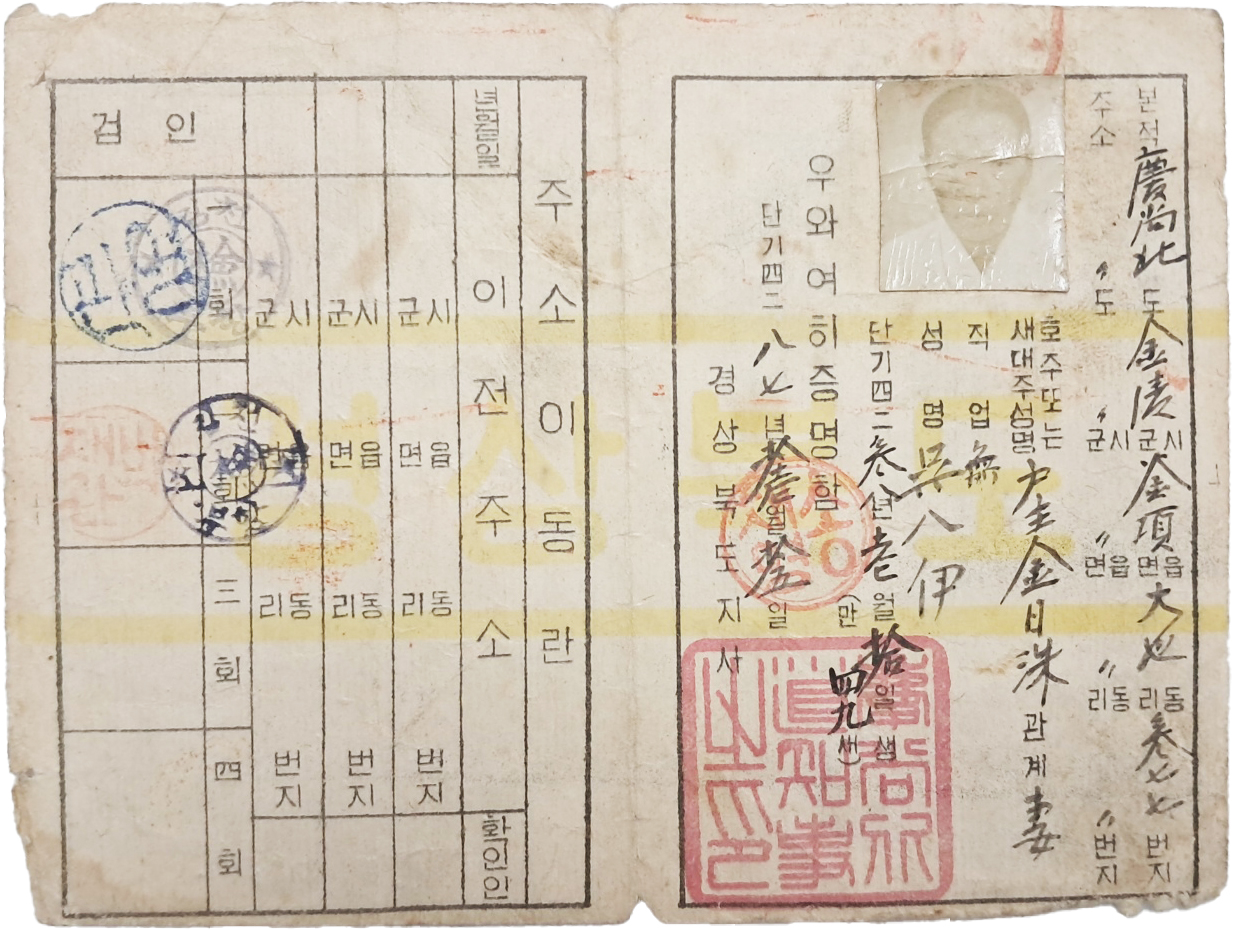 본적 慶尙北 도 金陵 군시 金項 면읍 大也 리동 參七七 번지
주소 〃 도 〃 군시 〃 면읍 〃 리동 〃 번지
호주또는
새대주성명 戶主 金日洙 관계 妻
직업 無
성명 吳八伊
단기四二參八년 월 拾일생
(만 四九세)
우와여히증명함
단기四二八七년 월 일
경상북도지사
慶尙北
道知事
之印
경상북도
주소이동란
년월일 이전주소 확인인
시군 읍면 동리 번지
시군 읍면 동리 번지
시군 읍면 동리 번지
검인
一회
二회
三회
四회